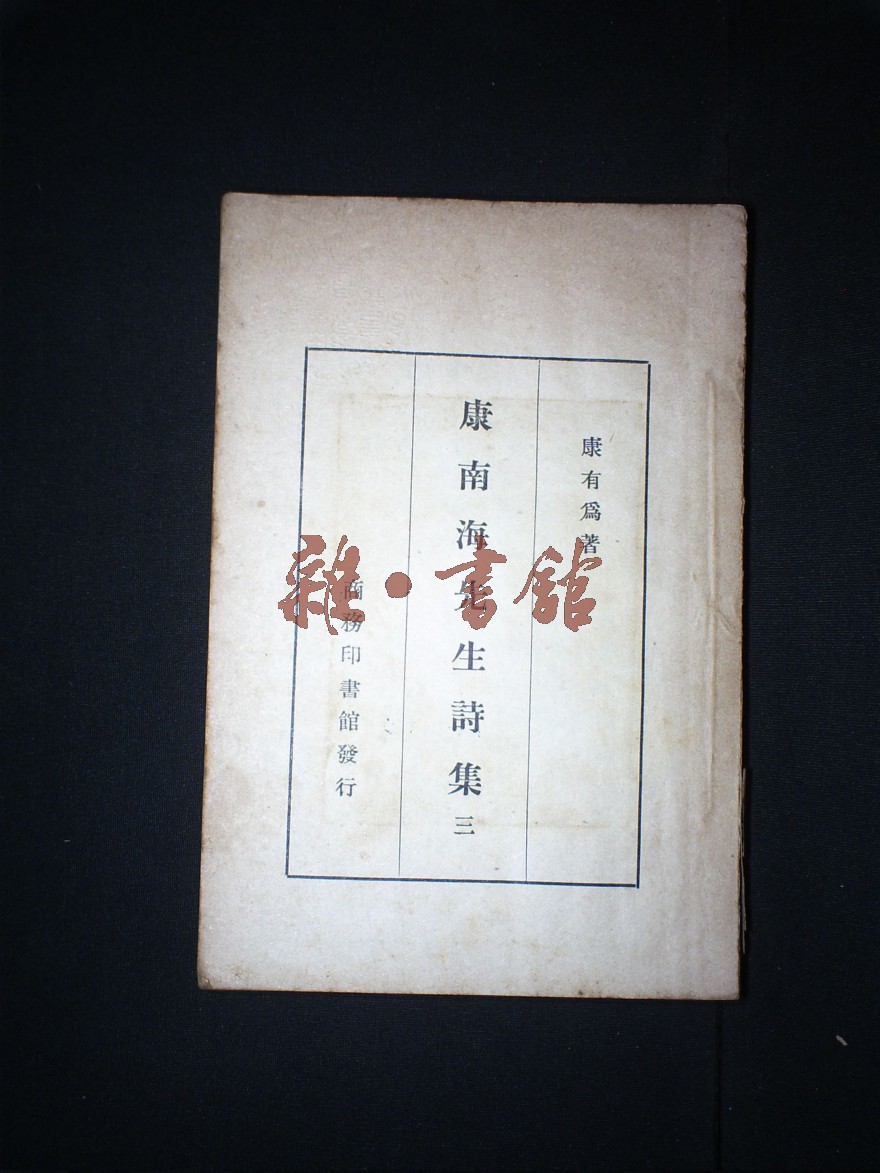 康有爲著
康南海先生詩集 三
商務印書館發行
雜·書館